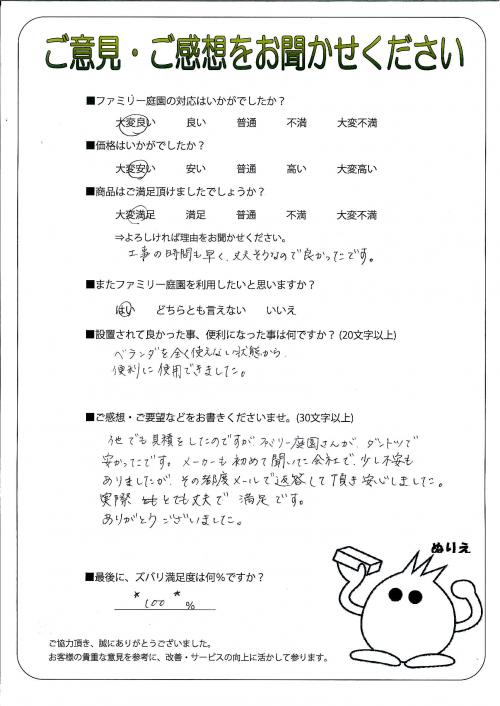 ご意見・ご感想をお聞かせください
■ファミリー庭園の対応はいかがでしたか？
大変良い 良い 普通 不満 大変不満
■価格はいかがでしたか？
大変安い 安い 普通 高い 大変高い
■商品はご満足頂けましたでしょうか？
大変満足 満足 普通 不満 大変不満
⇒よろしければ理由をお聞かせください。
工事の時間も早く、丈夫そうなので良かったです。
■またファミリー庭園を利用したいと思いますか？
はい どちらとも言えない いいえ
■設置されて良かった事、便利になった事は何ですか？(20文字以上)
ベランダを全く使えない状態から
便利に使用できました。
■ご感想・ご要望などをお書きくださいませ。(30文字以上)
他でも見積をしたのですが、ファミリー庭園さんが、ダントツで
安かったです。メーカーも初めて聞いた会社で、少し不安も
ありましたが、その都度メールで返答して頂き安心しました。
実際とても丈夫で満足です。
ありがとうございました。
ぬりえ
■最後に、ズバリ満足度は何％ですか？
* 100 * %
ご協力頂き、誠にありがとうございました。
お客様の貴重な意見を参考に、改善・サービスの向上に活かして参ります。